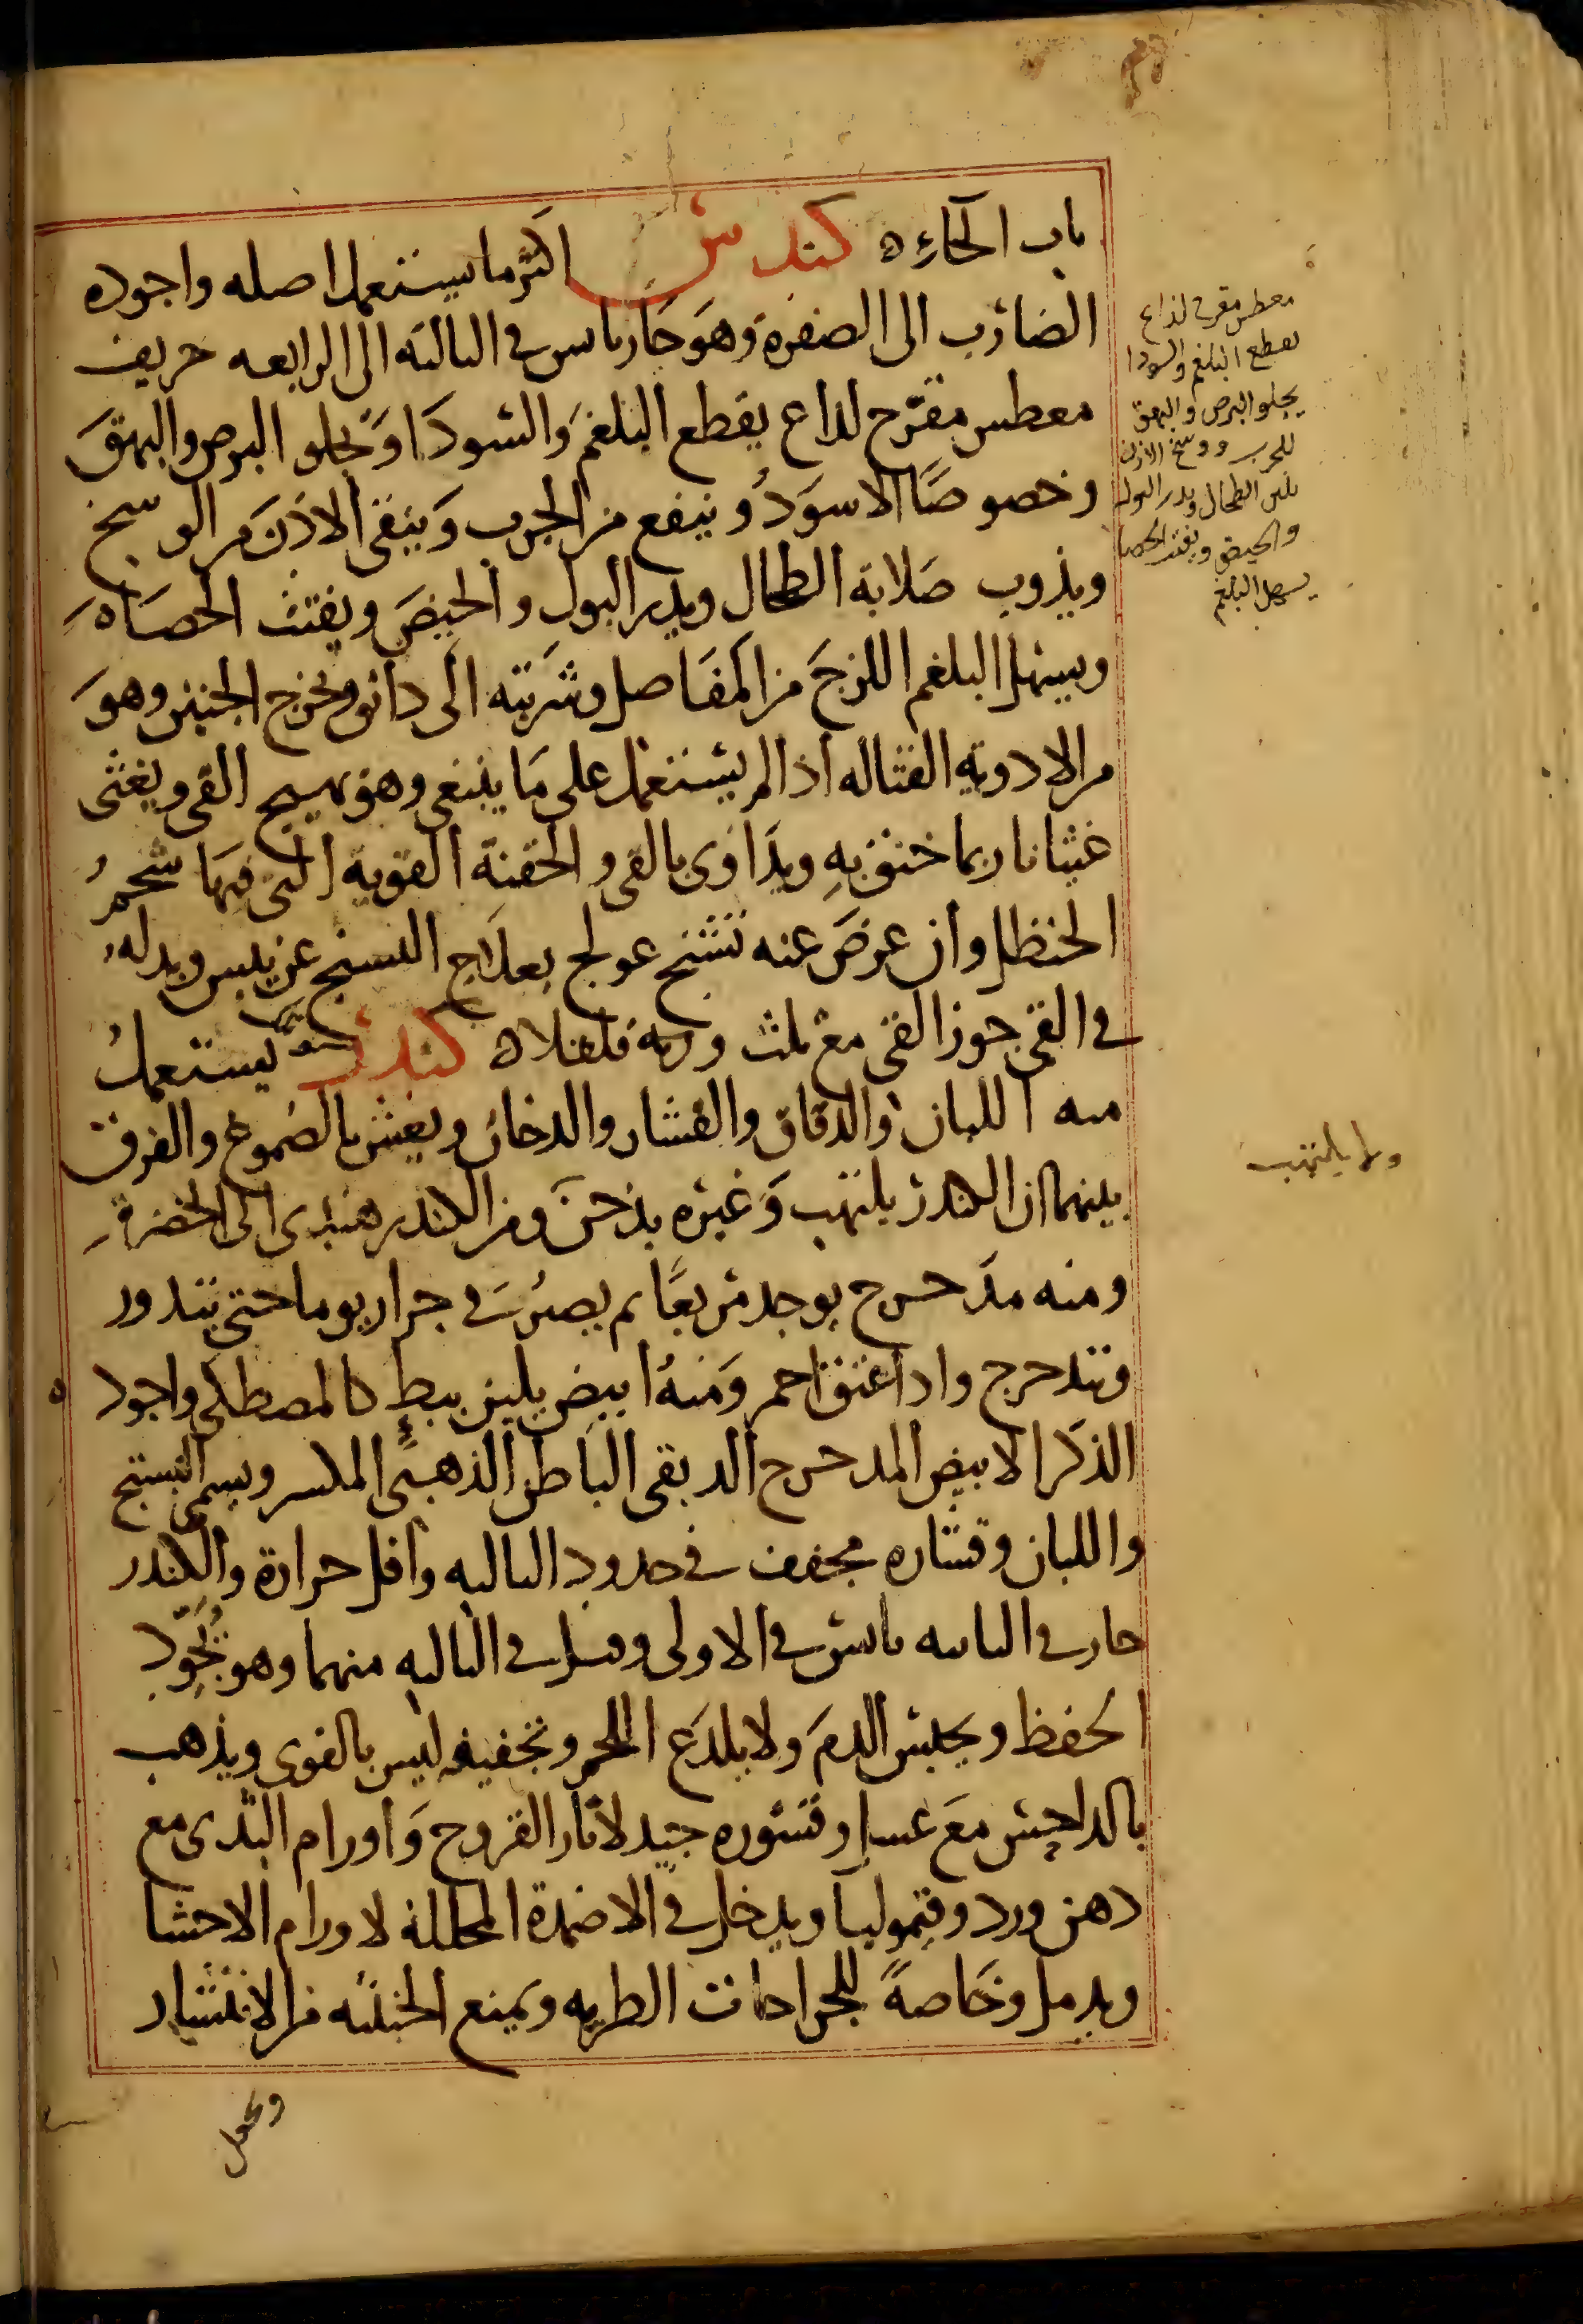 باب الحاء ه كندس اكثر ما يستعمل اصله واجوده
الضارب الى الصفرة وهو حار يابس في الثالثه الى الرابعه حريف
معطس مقرح لداع يقطع البلغم والسودا ويجلو البرص والبهق
وخصوصا الاسود وينفع من الجرب وينقي الاذن من الوسخ
ويذوب صلابة الطحال ويدر البول والحيض ويفتت الحصاه
ويسهل البلغم اللزج من المفاصل وشربته الى دانق ويخرج الجنين وهو
من الادوية القتاله اذا لم يستعمل على ما ينبغي وهو يهيج القي ويغثي
غثيانا ربما خنق به ويداوى بالقي والحقنة القوية التي فيها شحم
الحنظل وان عرض عنه تشنج عولج بعلاج التشنج عن يبس وبدله
في القي جوز القي مع ثلث وزنه فلفلا ه كندر يستعمل
منه اللبان والدقاق والقشار والدخان ويغش بالصموغ والفرق
بينهما ان الكندر يلتهب وغيره يدخن ومن الكندر هندي الى الخضرة
ومنه مدحرج يوجد مربعا ثم يصير في جرار يوما حتى يتدور
ويتدحرج واذا عتق احمر ومنه ابيض يلين ببطء كالمصطكي واجوده
الذكر الابيض المدحرج الدبقي الباطن الذهبي المكسر ويسمى
واللبان وقشاره مجفف في حدود الثالثه واقل حرارة والكندر
حار في الثانيه يابس في الاولى وقيل في الثالثه منهما وهو يجود
الحفظ ويحبس الدم ولا يلدع اللحم وتجفيفه ليس بالقوى ويذهب
بالداحس مع عسل وقشوره جيد لاثار القروح واورام الثدى مع
دهن ورد وقيموليا ويدخل في الاضمدة المحللة لاورام الاحشا
ويدمل وخاصة للجراحات الطريه ويمنع الخبيثه من الانتشار
ويجعل
معطس مقرح لذاع
يقطع البلغم والسودا
يجلو البرص والبهق
للجرب ووسخ الاذن
يلين الطحال ويدر البول
والحيض ويفتت الحصا
يسهل البلغم